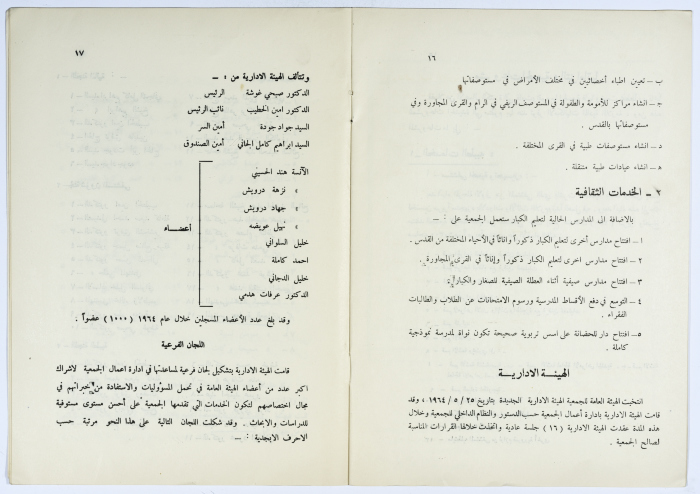 ١٦
ب ــ تعيين اطباء أخصائيين في مختلف الأمراض في مستوصفاتها
ج ــ انشاء مراكز للأمومة والطفولة في المستوصف الريفي في الرام والقرى المجاورة وفي
مستوصفاتها بالقدس .
د ــ انشاء مستوصفات طبية في القرى المختلفة .
ه ــ انشاء عيادات طبية متنقلة .
٢ ــ الخدمات الثقافية
بالاضافة الى المدارس الحالية لتعليم الكبار ستعمل الجمعية على : ــ
١ ــ افتتاح مدارس أخرى لتعليم الكبار ذكوراً واناثاً في الأحياء المختلفة من القدس .
٢ ــ افتتاح مدارس اخرى لتعليم الكبار ذكوراً وإناثاً في القرى المجاورة .
٣ ــ افتتاح مدارس صيفية أثناء العطلة الصيفية للصغار والكبار .
٤ ــ التوسع في دفع الأقساط المدرسية ورسوم الامتحانات عن الطلاب والطالبات
الفقراء .
٥ ــ افتتاح دار للحضانة على اسس تربوية صحيحة تكون نواة لمدرسة نموذجية
كاملة .
الهيئة الادارية
انتخبت الهيئة العامة للجمعية الهيئة الادارية الجديدة بتاريخ ٢٥ / ٥ / ١٩٦٤ ، وقد
قامت الهيئة الادارية بادارة أعمال الجمعية حسب الدستور والنظام الداخلي للجمعية وخلال
هذه المدة عقدت الهيئة الادارية ( ١٦ ) جلسة عادية واتخذت خلالها القرارات المناسبة
لصالح الجمعية .
١٧
وتتألف الهيئة الادارية من : ــ
الدكتور صبحي غوشة الرئيس
الدكتور امين الخطيب نائب الرئيس
السيد جواد جودة أمين السر
السيد ابراهيم كامل الجاني أمين الصندوق
الآنسة هند الحسيني
» نزهة درويش
» جهاد درويش
» نبيل عويضه
أعضاء
خليل السلواني
احمد كاملة
خليل الدجاني
الدكتور عرفات هدمي
وقد بلغ عدد الأعضاء المسجلين خلال عام ١٩٦٤ ( ١٠٠٠ ) عضواً .
اللجان الفرعية
قامت الهيئة الادارية بتشكيل لجان فرعية لمساعدتها في ادارة اعمال الجمعية لاشراك
اكبر عدد من أعضاء الهيئة العامة في تحمل المسؤوليات والاستفادة من خبراتهم في
مجال اختصاصهم لتكون الخدمات التي تقدمها الجمعية على أحسن مستوى مستوفية
للدراسات والابحاث . وقد شكلت اللجان التالية على هذا النحو مرتبة حسب
الاحرف الابجدية : ــ